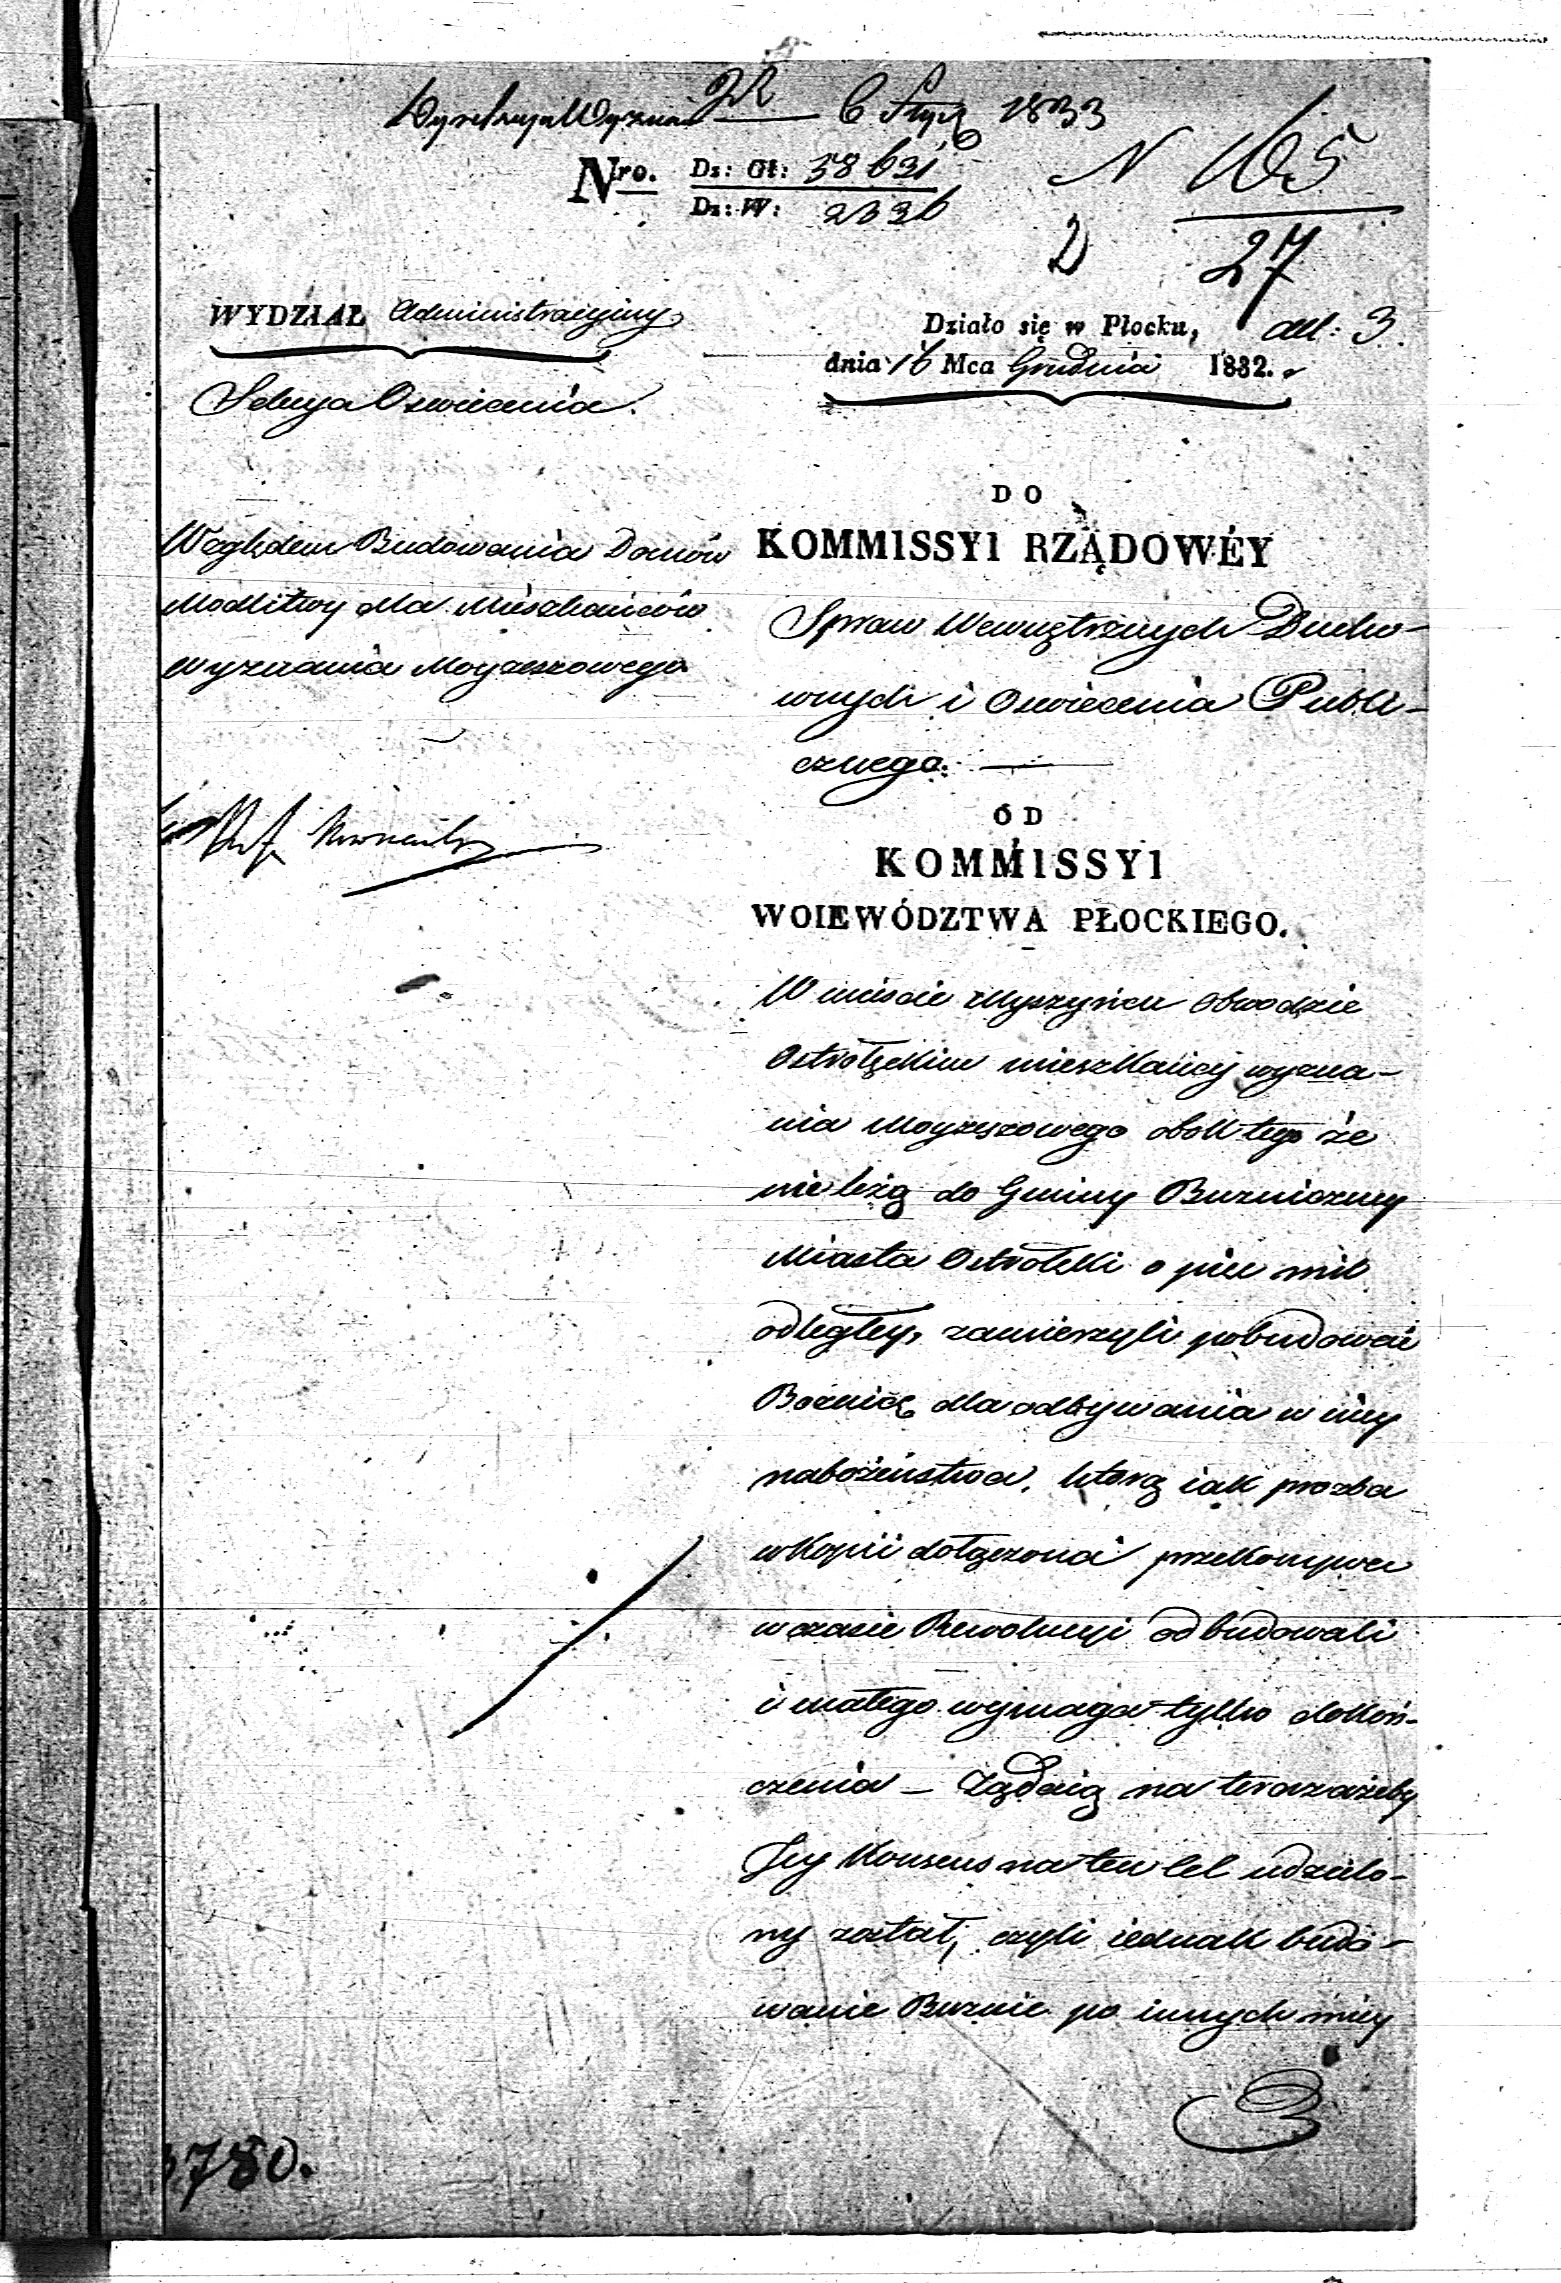 6 Stycz 1833
Nro. Dz: Gł: 38631
Dz: W: 2336
N 165
27
D
WYDZIAŁ Administracyiny
Działo się w Płocku, all: 3.
dnia 16 Mca Grudnia 1832.
Sekcya Oswiecenia.
Względem Budowania Domów
Modlitwy dla Mieszkańców
wyznania Moyzeszowego
DO
KOMMISSYI RZĄDOWÉY
Spraw Wewnętrznych Ducho-
wnych i Oswiecenia Publi-
cznego.
OD
KOMMISSYI
WOIEWÓDZTWA PŁOCKIEGO.
W miescie Myszyńcu Obwodzie
Ostrołęckim mieszkańcy wyzna-
nia Moyzeszowego obok tego że
nieleżą do Gminy Buzniczney
Miasta Ostrołęki o pięć mil
odległey, zamierzyli pobudować
Boznicę dla odbywania w niey
nabożeństwa, którą iak prozba
w Kopii dołączona przekonywa
w czasie Rewolucyi odbudowali
i małego wymaga tylko dokoń-
czenia – Żądaią na teraz ażeby
Jey Konsens na ten cel udzielo-
ny został, czyli iednak budo-
wanie Buznic po innych miey
780.